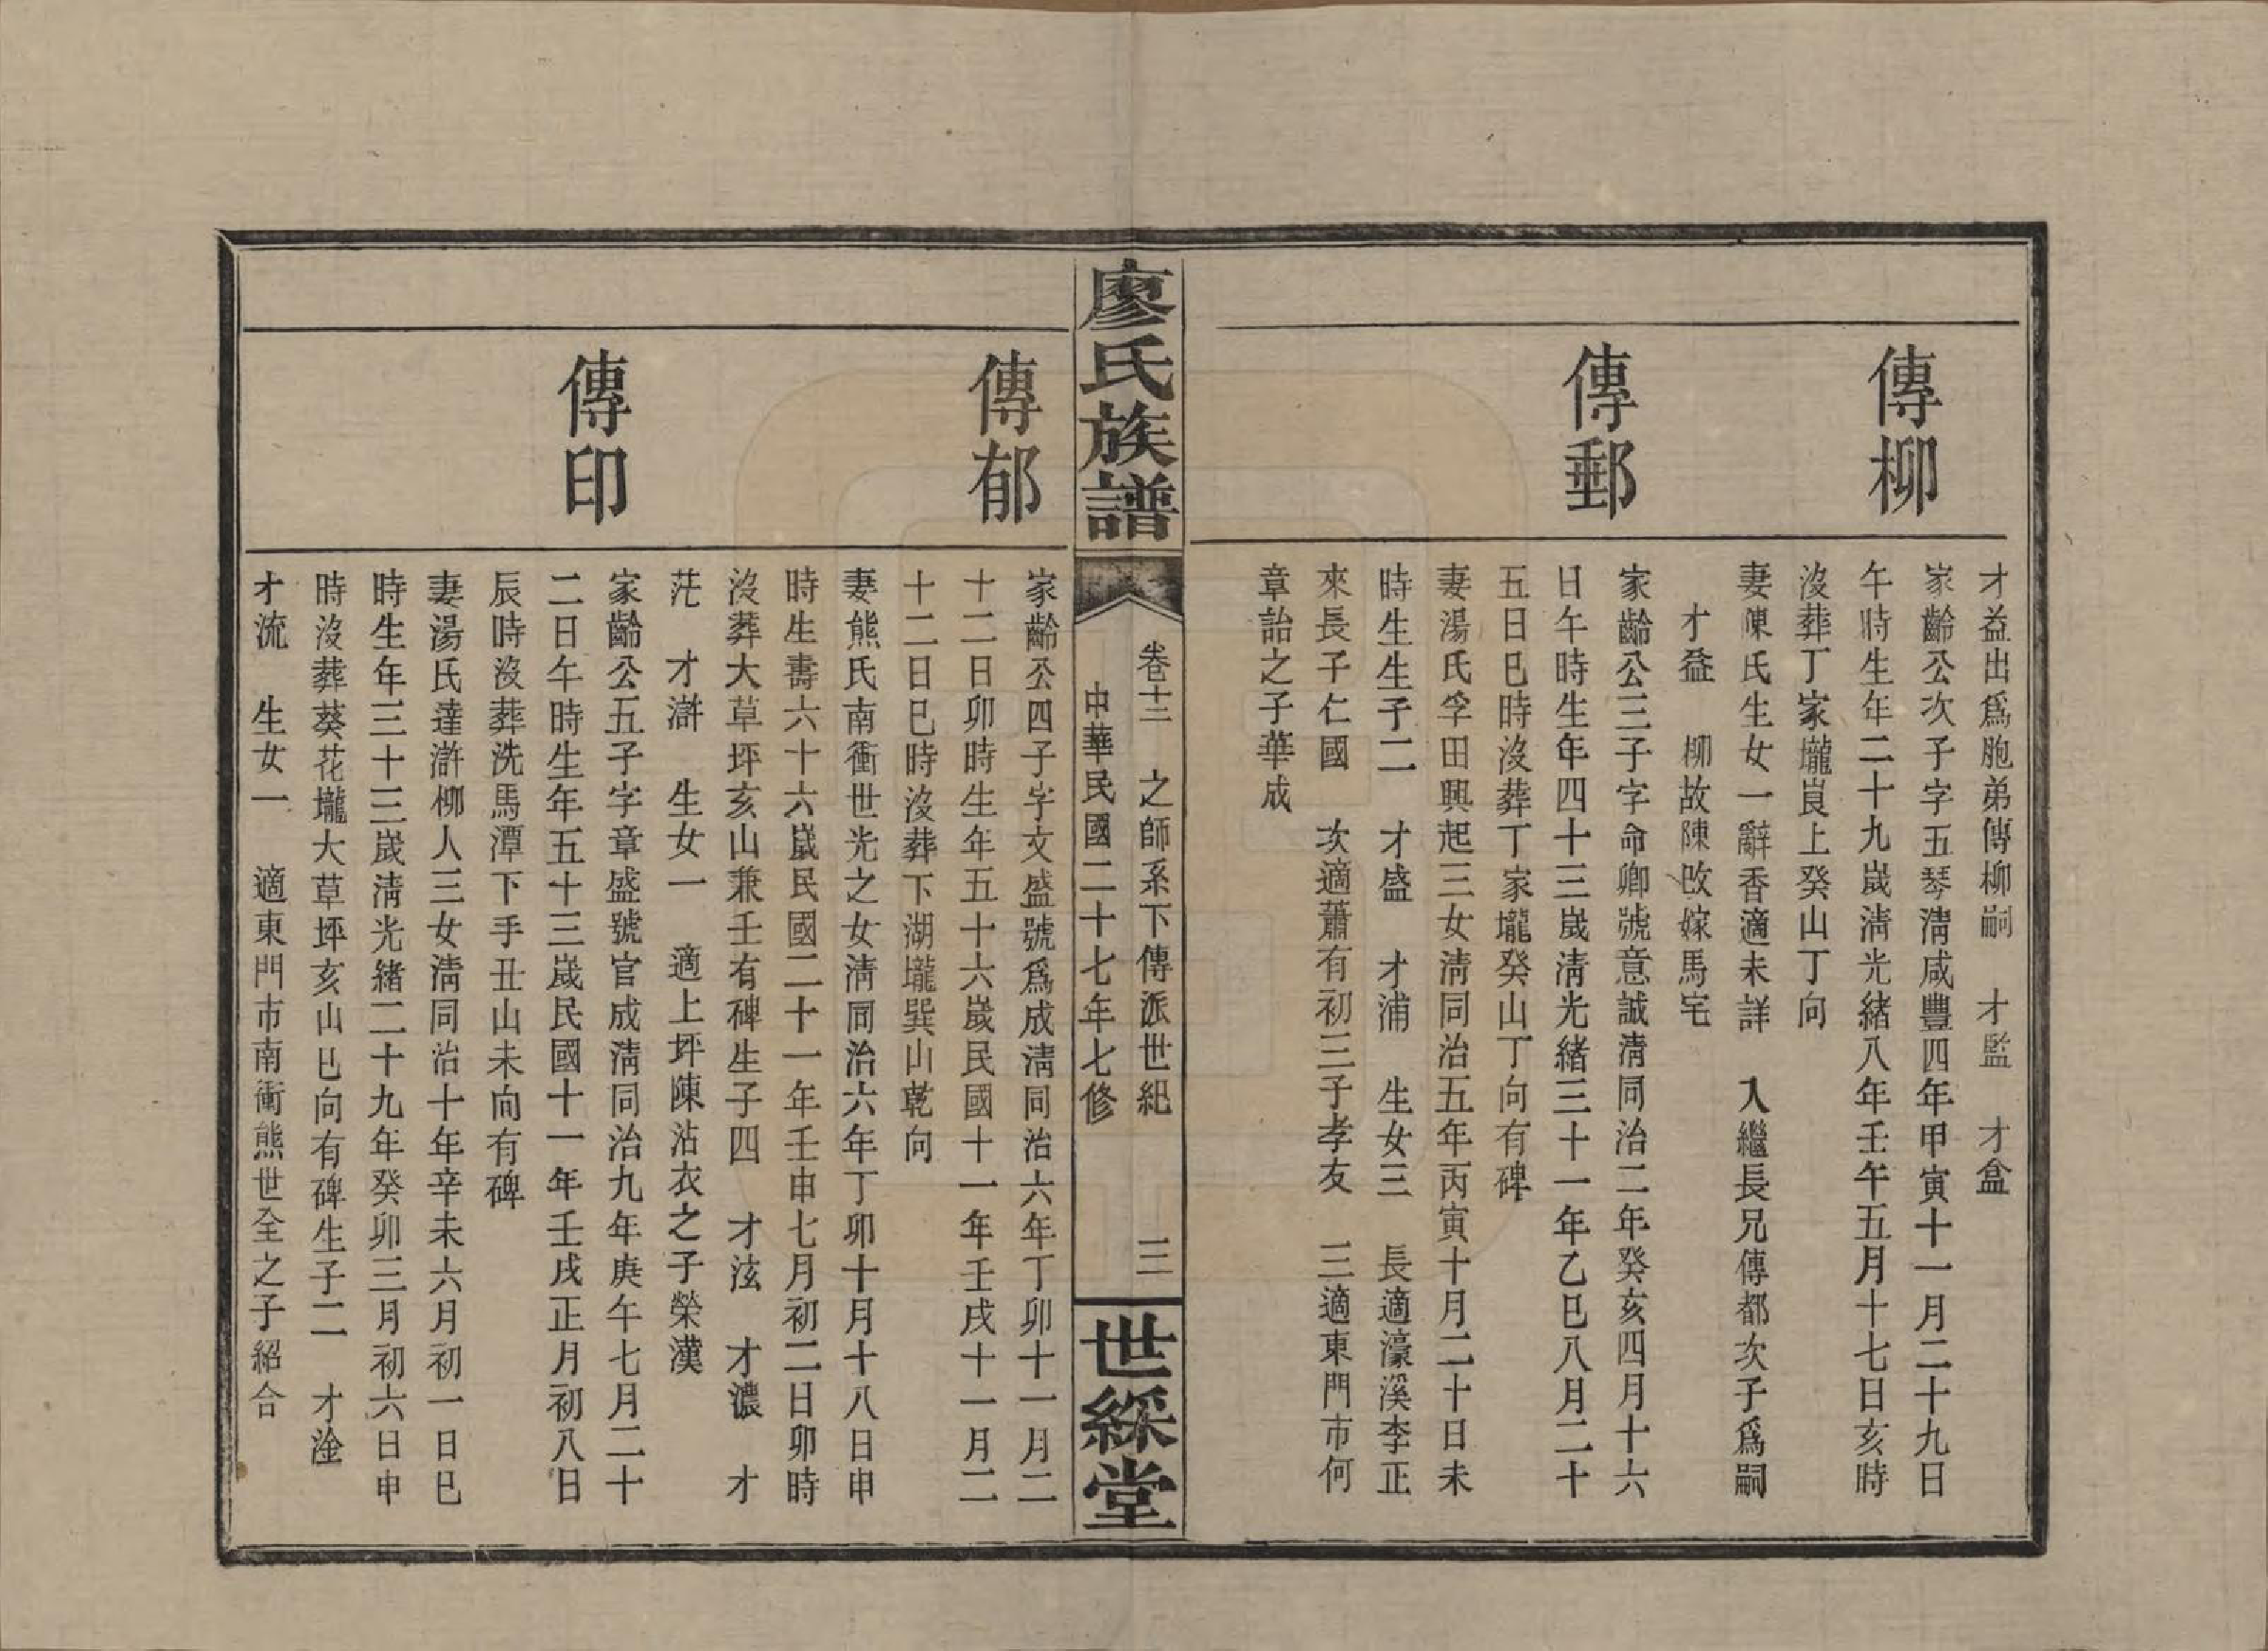 才益出爲胞弟傳柳嗣　才監　才盒
傳柳
家齡公次子字五琴淸咸豐四年甲寅十一月二十九日
午時生年二十九歲淸光緖八年壬午五月十七日亥時
沒葬丁家壠崀上癸山丁向
妻陳氏生女一辭香適未詳　入繼長兄傳都次子爲嗣
才益　柳故陳改嫁馬宅
傳郵
家齡公三子字命卿號意誠淸同治二年癸亥四月十六
日午時生年四十三歲淸光緖三十一年乙巳八月二十
五日巳時沒葬丁家壠癸山丁向有碑
妻湯氏孚田興起三女淸同治五年丙寅十月二十日未
時生生子二　才盛　才浦　生女三　長適濠溪李正
來長子仁國　次適蕭有初三子孝友　三適東門市何
章詒之子華成
廖氏族譜
卷十三　之師系下傳派世紀　三
中華民國二十七年七修
世綵堂
傳郁
家齡公四子字文盛號爲成淸同治六年丁卯十一月二
十二日卯時生年五十六歲民國十一年壬戌十一月二
十二日巳時沒葬下湖壠巽山乾向
妻熊氏南衝世光之女淸同治六年丁卯十月十八日申
時生壽六十六歲民國二十一年壬申七月初二日卯時
沒葬大草坪亥山兼壬有碑生子四　才泫　才濃　才
茫　才滸　生女一　適上坪陳沾衣之子榮漢
傳印
家齡公五子字章盛號官成淸同治九年庚午七月二十
二日午時生年五十三歲民國十一年壬戌正月初八日
辰時沒葬洗馬潭下手丑山未向有碑
妻湯氏達滸柳人三女淸同治十年辛未六月初一日巳
時生年三十三歲淸光緖二十九年癸卯三月初六日申
時沒葬葵花壠大草坪亥山巳向有碑生子二　才淦
才流　生女一　適東門市南衝熊世全之子紹合